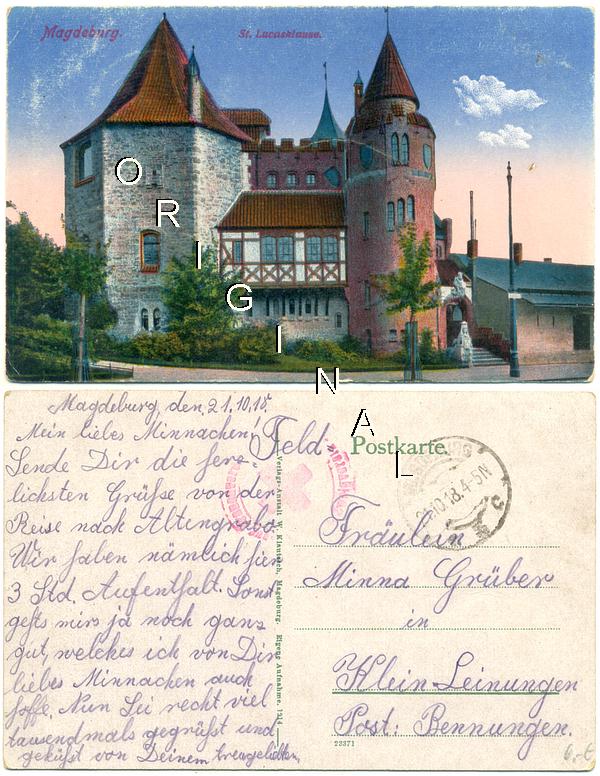 Magdeburg.
St. Lucasklause.
ORIGINAL
Magdeburg, den, 21.10.18.
Mein liebes Minnachen!
Sende Dir die herz-
lichsten Grüße von der
Reise nach Altengrabo.
Wir haben nämlich hier
3 Std. Aufenthalt. Sonst
gehts mirs ja noch ganz
gut, welches ich von Dir
liebes Minnachen auch
hoffe. Nun Sei recht viel
tausendmals gegrüßt und
geküßt von Deinem treugeliebten,
Verlags-Anstalt W. Klautzsch, Magdeburg. Eigene Aufnahme. 1914
Feld Postkarte.
10.18.4-5N
C
Fräulein
Minna Grüber
in
Klein-Leinungen
Post: Bennungen.
23371
6,-€